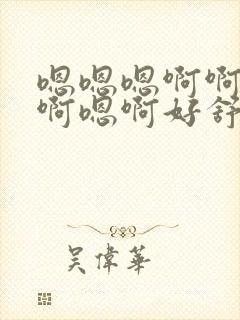 嗯嗯嗯啊啊
啊嗯啊好舒
吴偉華